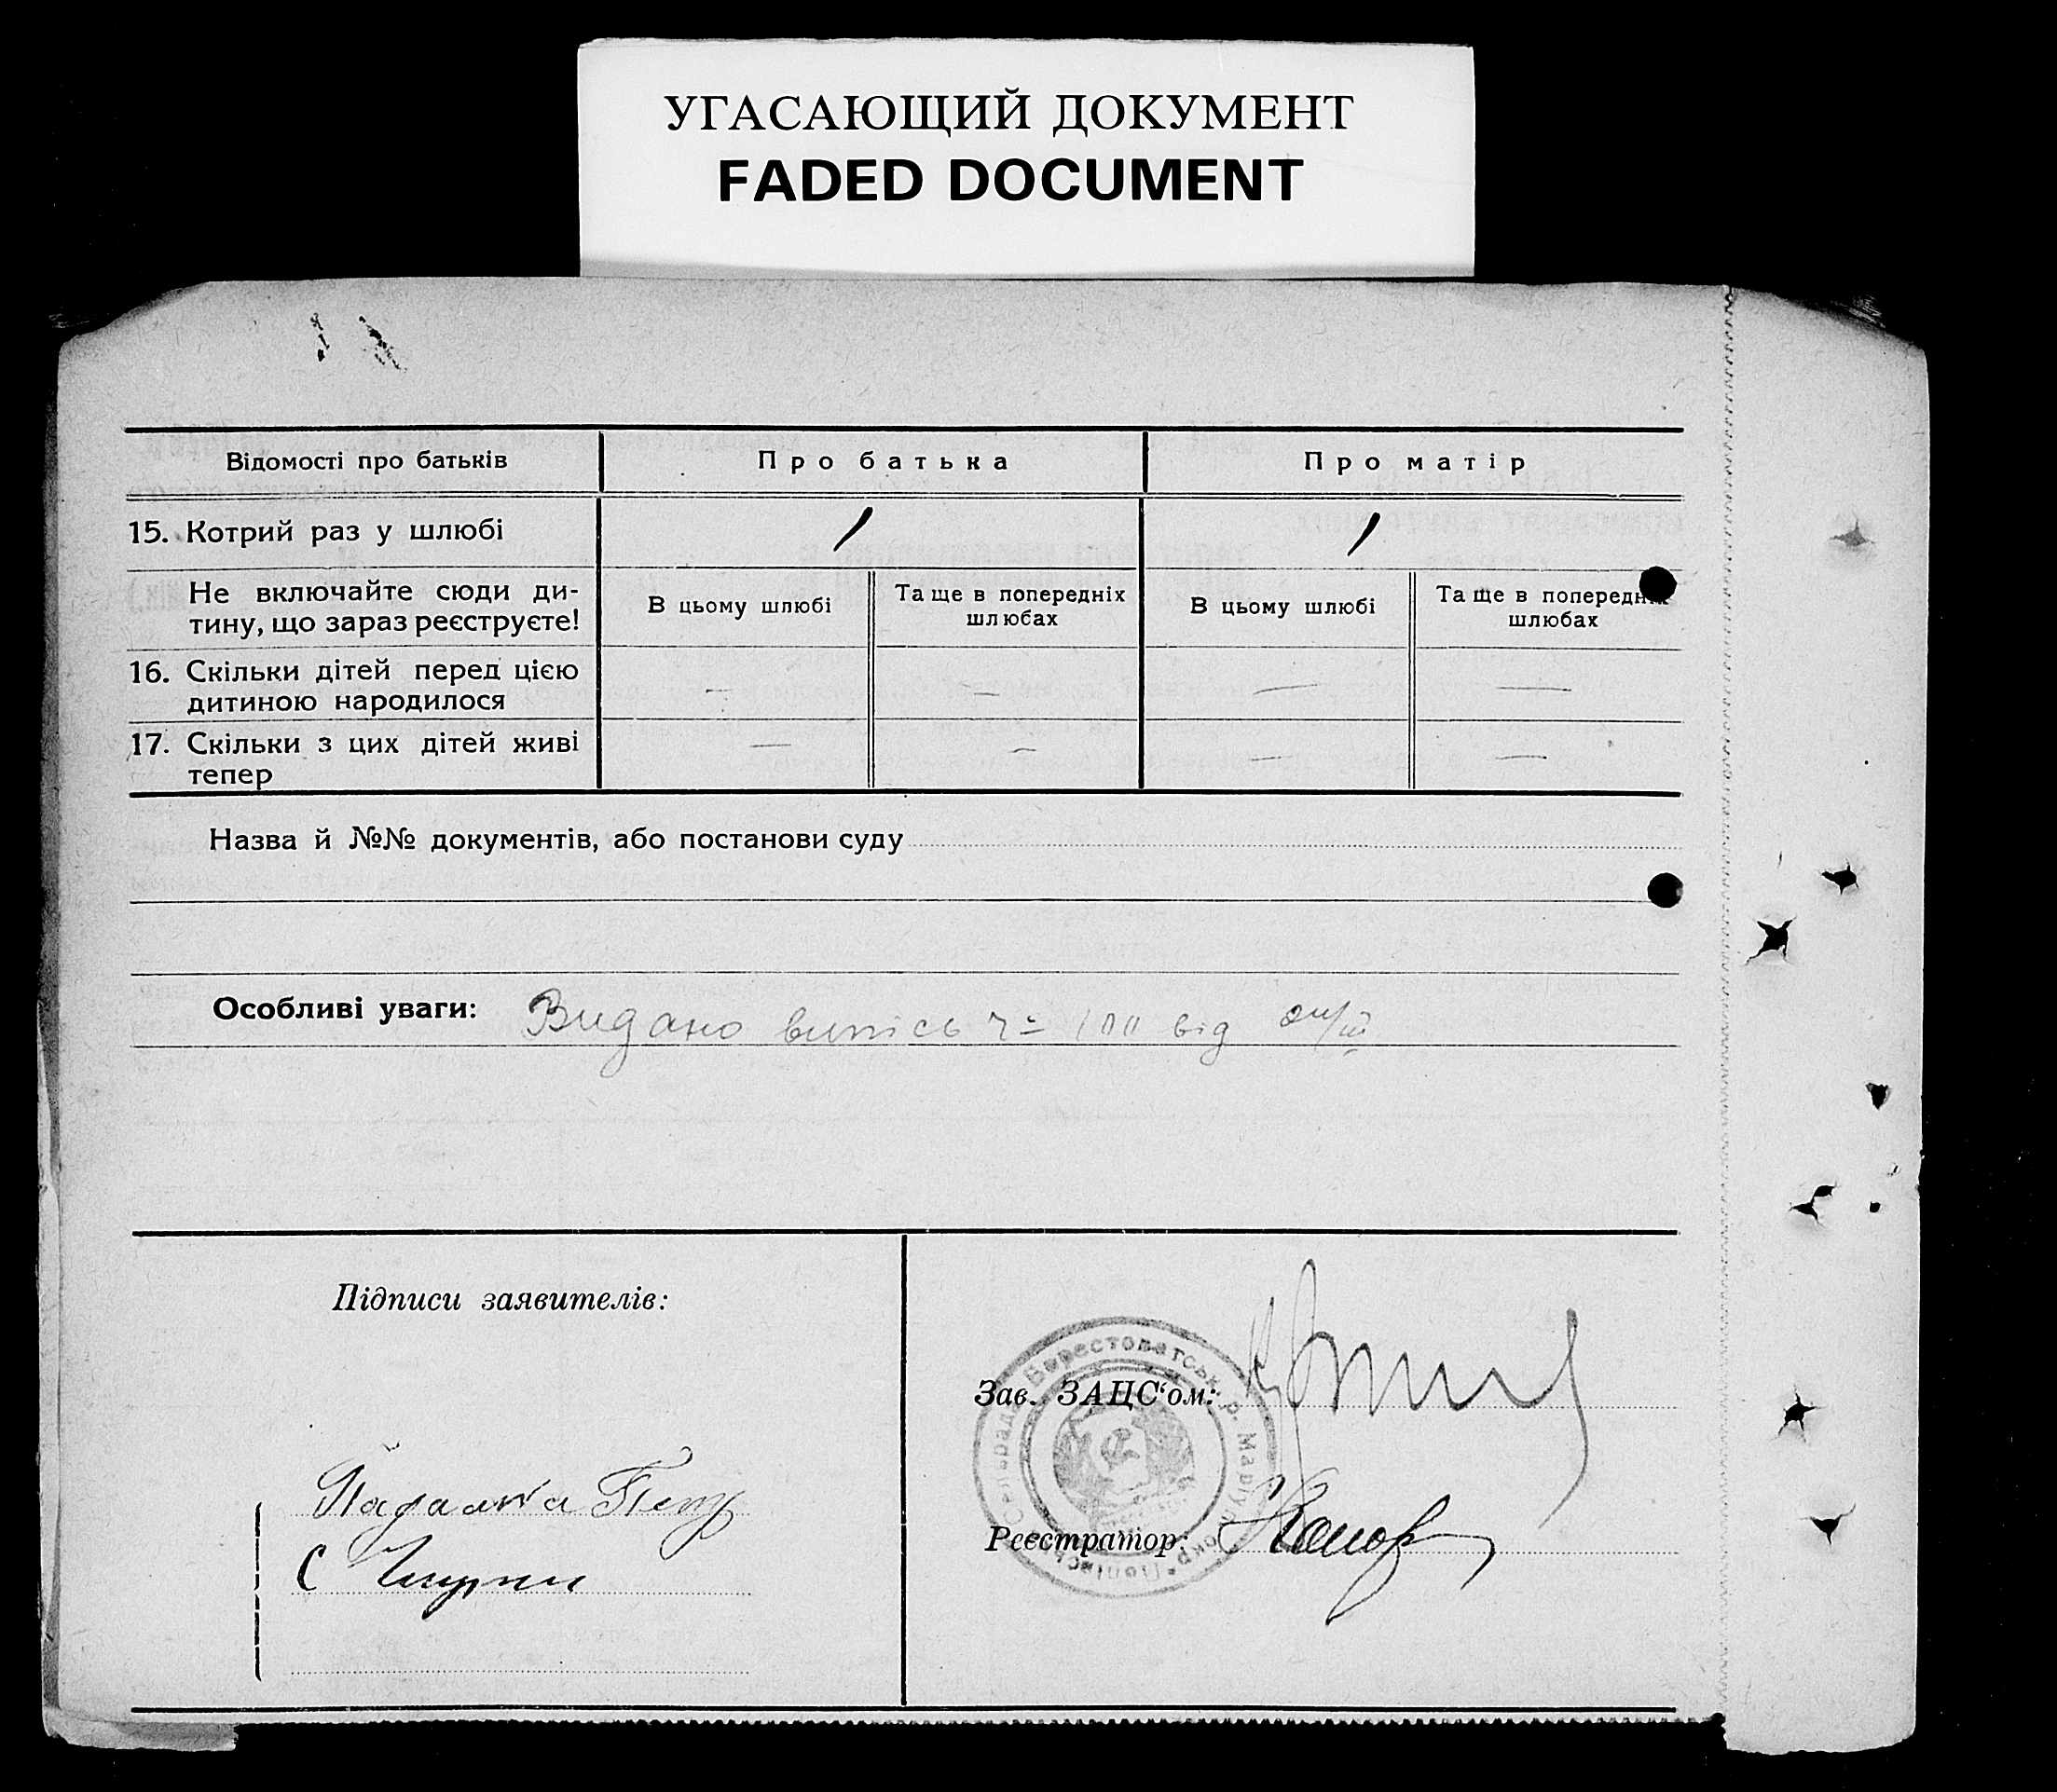 УГАСАЮЩИЙ ДОКУМЕНТ
FADED DOCUMENT
Відомості про батьків
Про батька
Про матір
15. Котрий раз у шлюбі
1
1
Не включайте сюди ди-
тину, що зараз реєструєте!
В цьому шлюбі
Та ще в попередніх
шлюбах
В цьому шлюбі
Та ще в попередніх
шлюбах
16. Скільки дітей перед цією
дитиною народилося
— — — —
17. Скільки з цих дітей живі
тепер
— — — —
Назва й №№ документів, або постанови суду
Особливі уваги: Видано випісь ч= 100 від
Підписи заявителів:
Падалка Петр
С
Зав. ЗАЦС‘ом:
Реєстратор:
Сельрада Берестоватськ. р. Маріуп. окр.